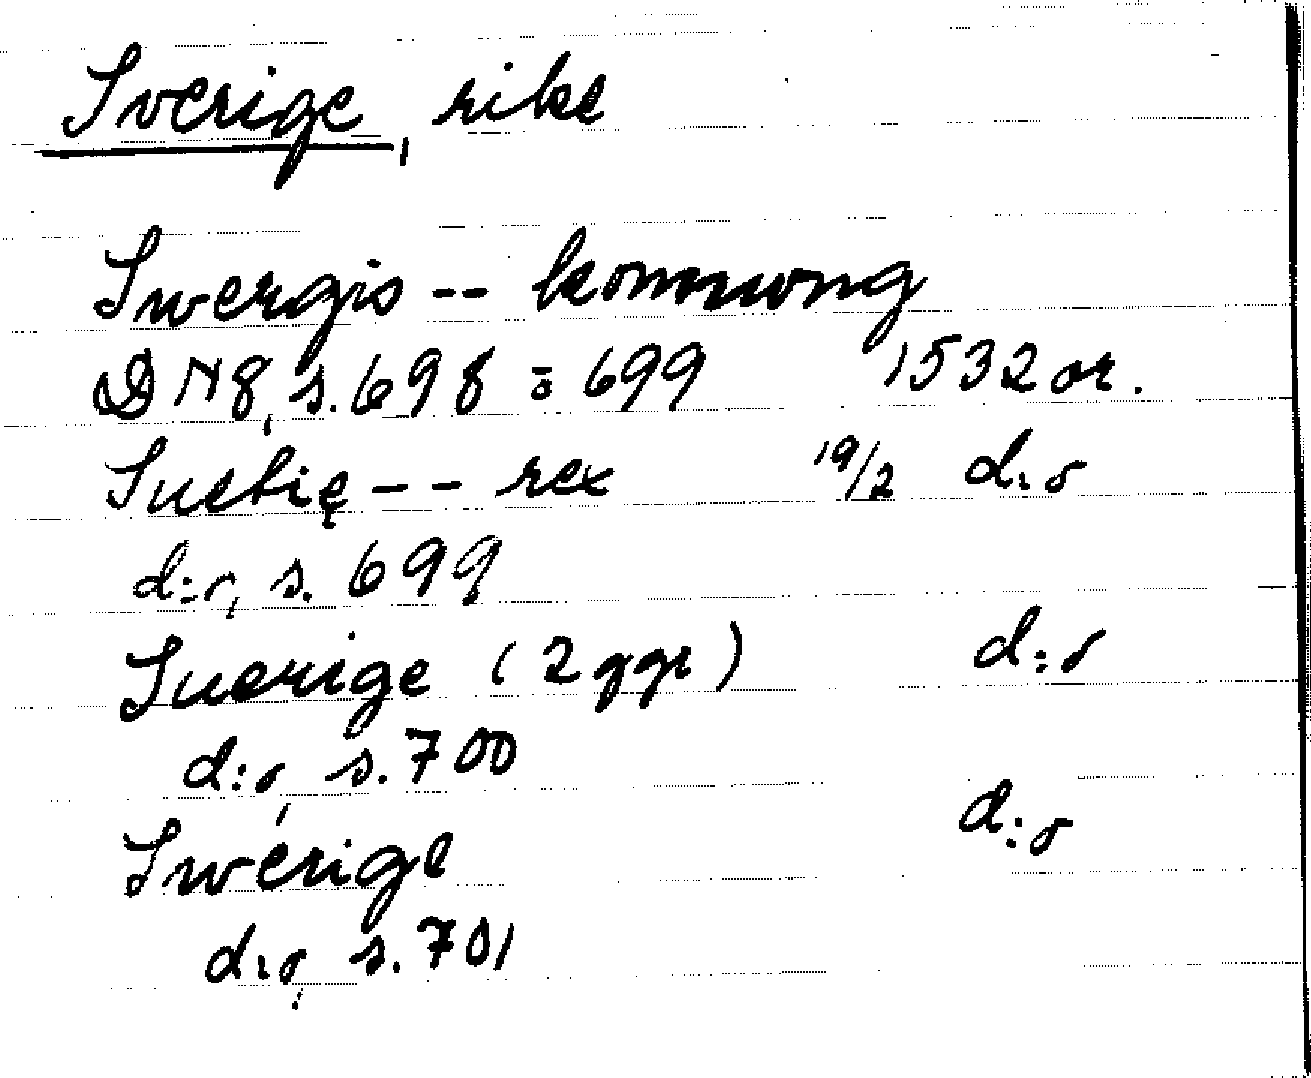 Sverige, rike
Swergis -- konnwng
DN 8, s. 698 = 699 1532 or.
Suetię -- rex 19/2 d:o
d:o, s. 699
Suerige (2 ggr) d:o
d:o, s. 700
Swerige d:o
d:o, s. 701